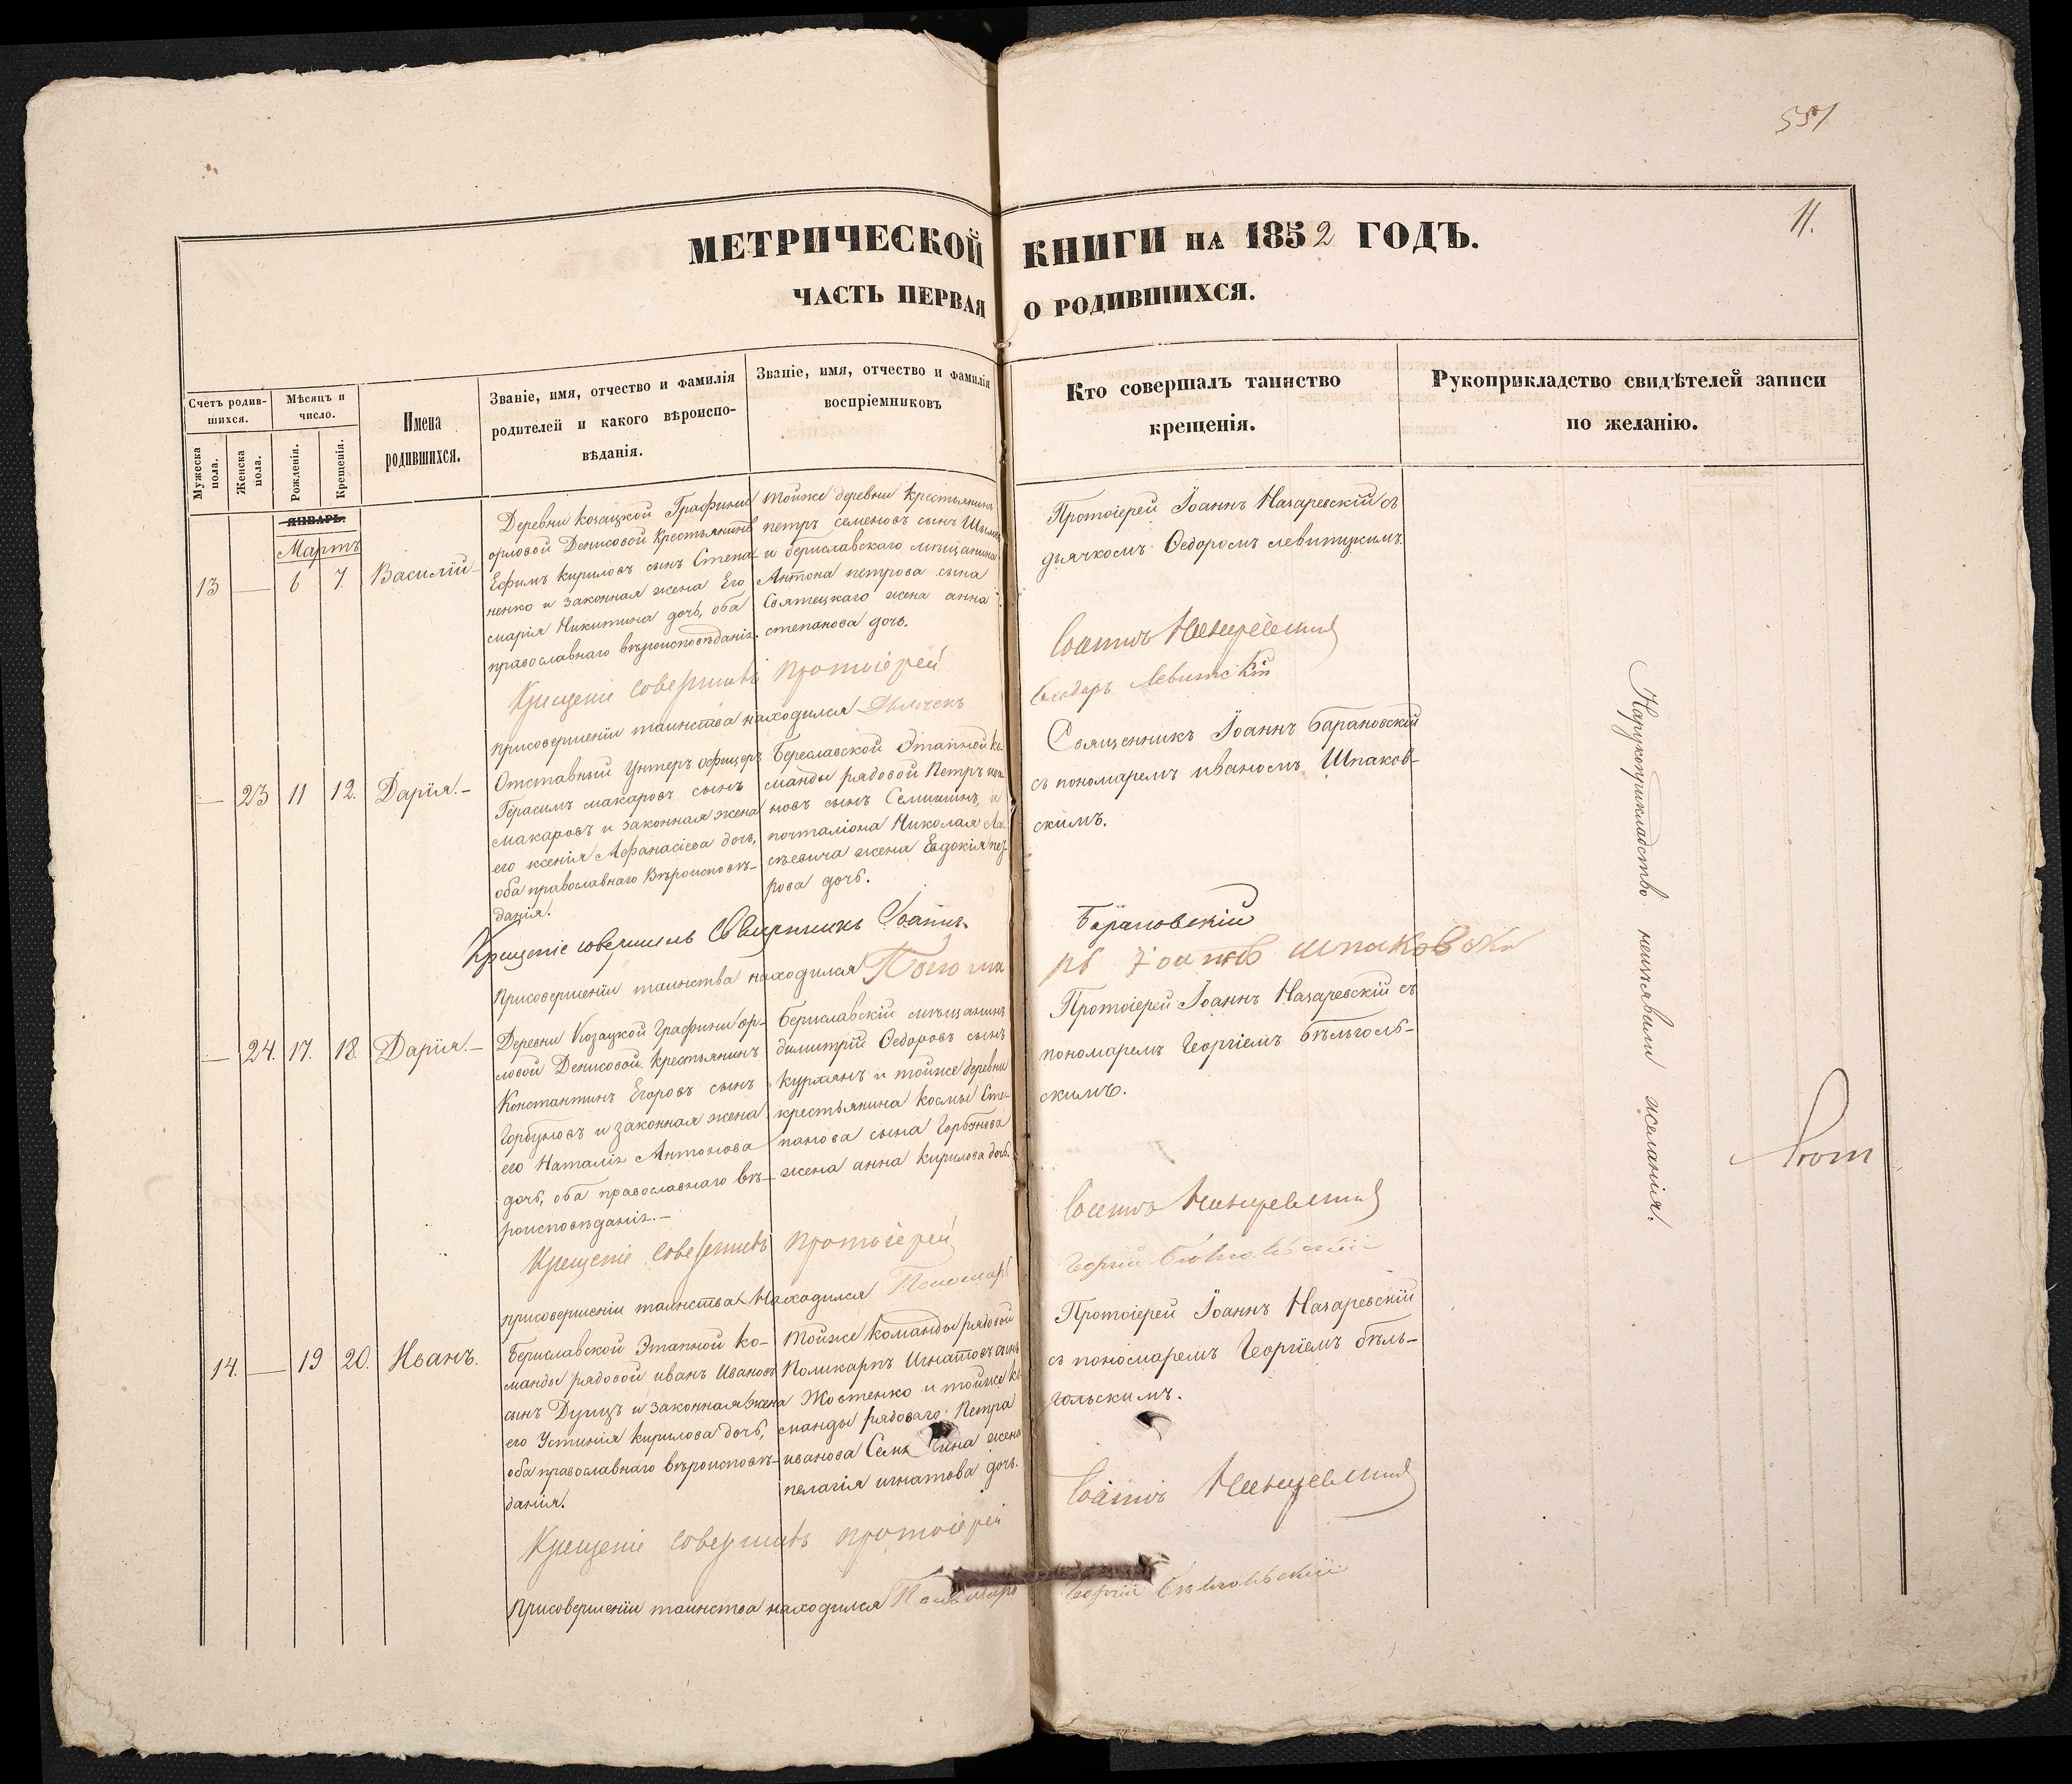 551
11.
МЕТРИЧЕСКОЙ КНИГИ НА 1852 ГОДЪ.
ЧАСТЬ ПЕРВАЯ О РОДИВШИХСЯ.
Счетъ родив-
шихся.
Мужеска
пола.
Женска
пола.
Мѣсяцъ и
число.
Рожденія.
Крещенія.
Имена
родившихся.
Званіе, имя, отчество и фамилія
родителей и какого вѣроиспо-
вѣданія.
Званіе, имя, отчество и фамилія
воспріемниковъ
Кто совершалъ таинство
крещенія.
Рукоприкладство свидѣтелей записи
по желанію.
ЯНВАРЬ.
Мартъ
13 — 6 7. Василій —
Деревни Козацкой Графини
орловой Денисовой Крестьянинъ
Ефимъ Кириловъ сынъ Степа-
ненко и законная жена Его
марія Никитина дочь, оба
православнаго вѣроисповѣданія.
тойже деревни Крестьянинъ
петръ семеновъ сынъ
и бериславскаго мѣщанина
Антона петрова сына
Святецкаго жена анна
степанова дочь.
Протоіерей Іоаннъ Назаревскій съ
дьячкомъ Ѳедоромъ левитскимъ.
Крещеніе совершилъ протоіерей
Іоаннъ Назаревскій
присовершеніи таинства находился Дьячекъ
Ѳеодоръ Левитскій
— 23 11 12. Дарія. —
Отставный Унтеръ офицеръ
Герасимъ макаровъ сынъ
макаровъ и законная жена
его ксенія Афанасіева дочь,
оба православнаго Вѣроисповѣ-
данія.
Береславской Этапной ко-
манды рядовой Петръ ива-
новъ сынъ Семикинъ, и
почталіона Николая
жена Евдокія пет-
рова дочь.
Священникъ Іоаннъ Барановскій
съ пономаремъ иваномъ Шпаков-
скимъ.
Крещеніе совершилъ Священникъ Іоаннъ
Барановскій
присовершеніи таинства находился Понома
рь Іоаннъ шпаковскі
— 24. 17. 18. Дарія. —
Деревни Козацкой Графини Ор-
ловой Денисовой Крестьянинъ
Константинъ Егоровъ сынъ
Горбуновъ и законная жена
его Наталія Антонова
дочь, оба православнаго вѣ-
роисповѣданія. —
Бериславскій мѣщанинъ
димитрій Ѳедоровъ сынъ
курманъ и тойже деревни
крестьянина космы Сте-
панова сына Горбунова
жена анна кирилова дочь.
Протоіерей Іоаннъ Назаревскій съ
пономаремъ Георгіемъ бѣльголь-
скимъ.
Крещеніе совершилъ протоіерей
Іоаннъ Назаревскій
присовершеніи таинства Находился Пономарь
Георгій Бѣлгольскій
14. — 19 20. Иванъ.
Бериславской Этапной ко-
манды рядовой иванъ Ивановъ
сынъ и законная жена
его Устинія кирилова дочь,
оба православнаго вѣроисповѣ-
данія.
тойже команды рядовой
Поликарпъ Игнатовъ сынъ
Костенко и тойже ко-
манды рядоваго Петра
иванова Семи кина жена
пелагія игнатова дочь.
Протоіерей Іоаннъ Назаревскій
съ пономаремъ Георгіемъ бѣль-
гольскимъ.
Крещеніе совершилъ протоіерей
Іоаннъ Назаревскій
присовершеніи таинства находился Пономарь
Георгій Бѣлгольскій
Нарукоприкладство неизъявили желанія.